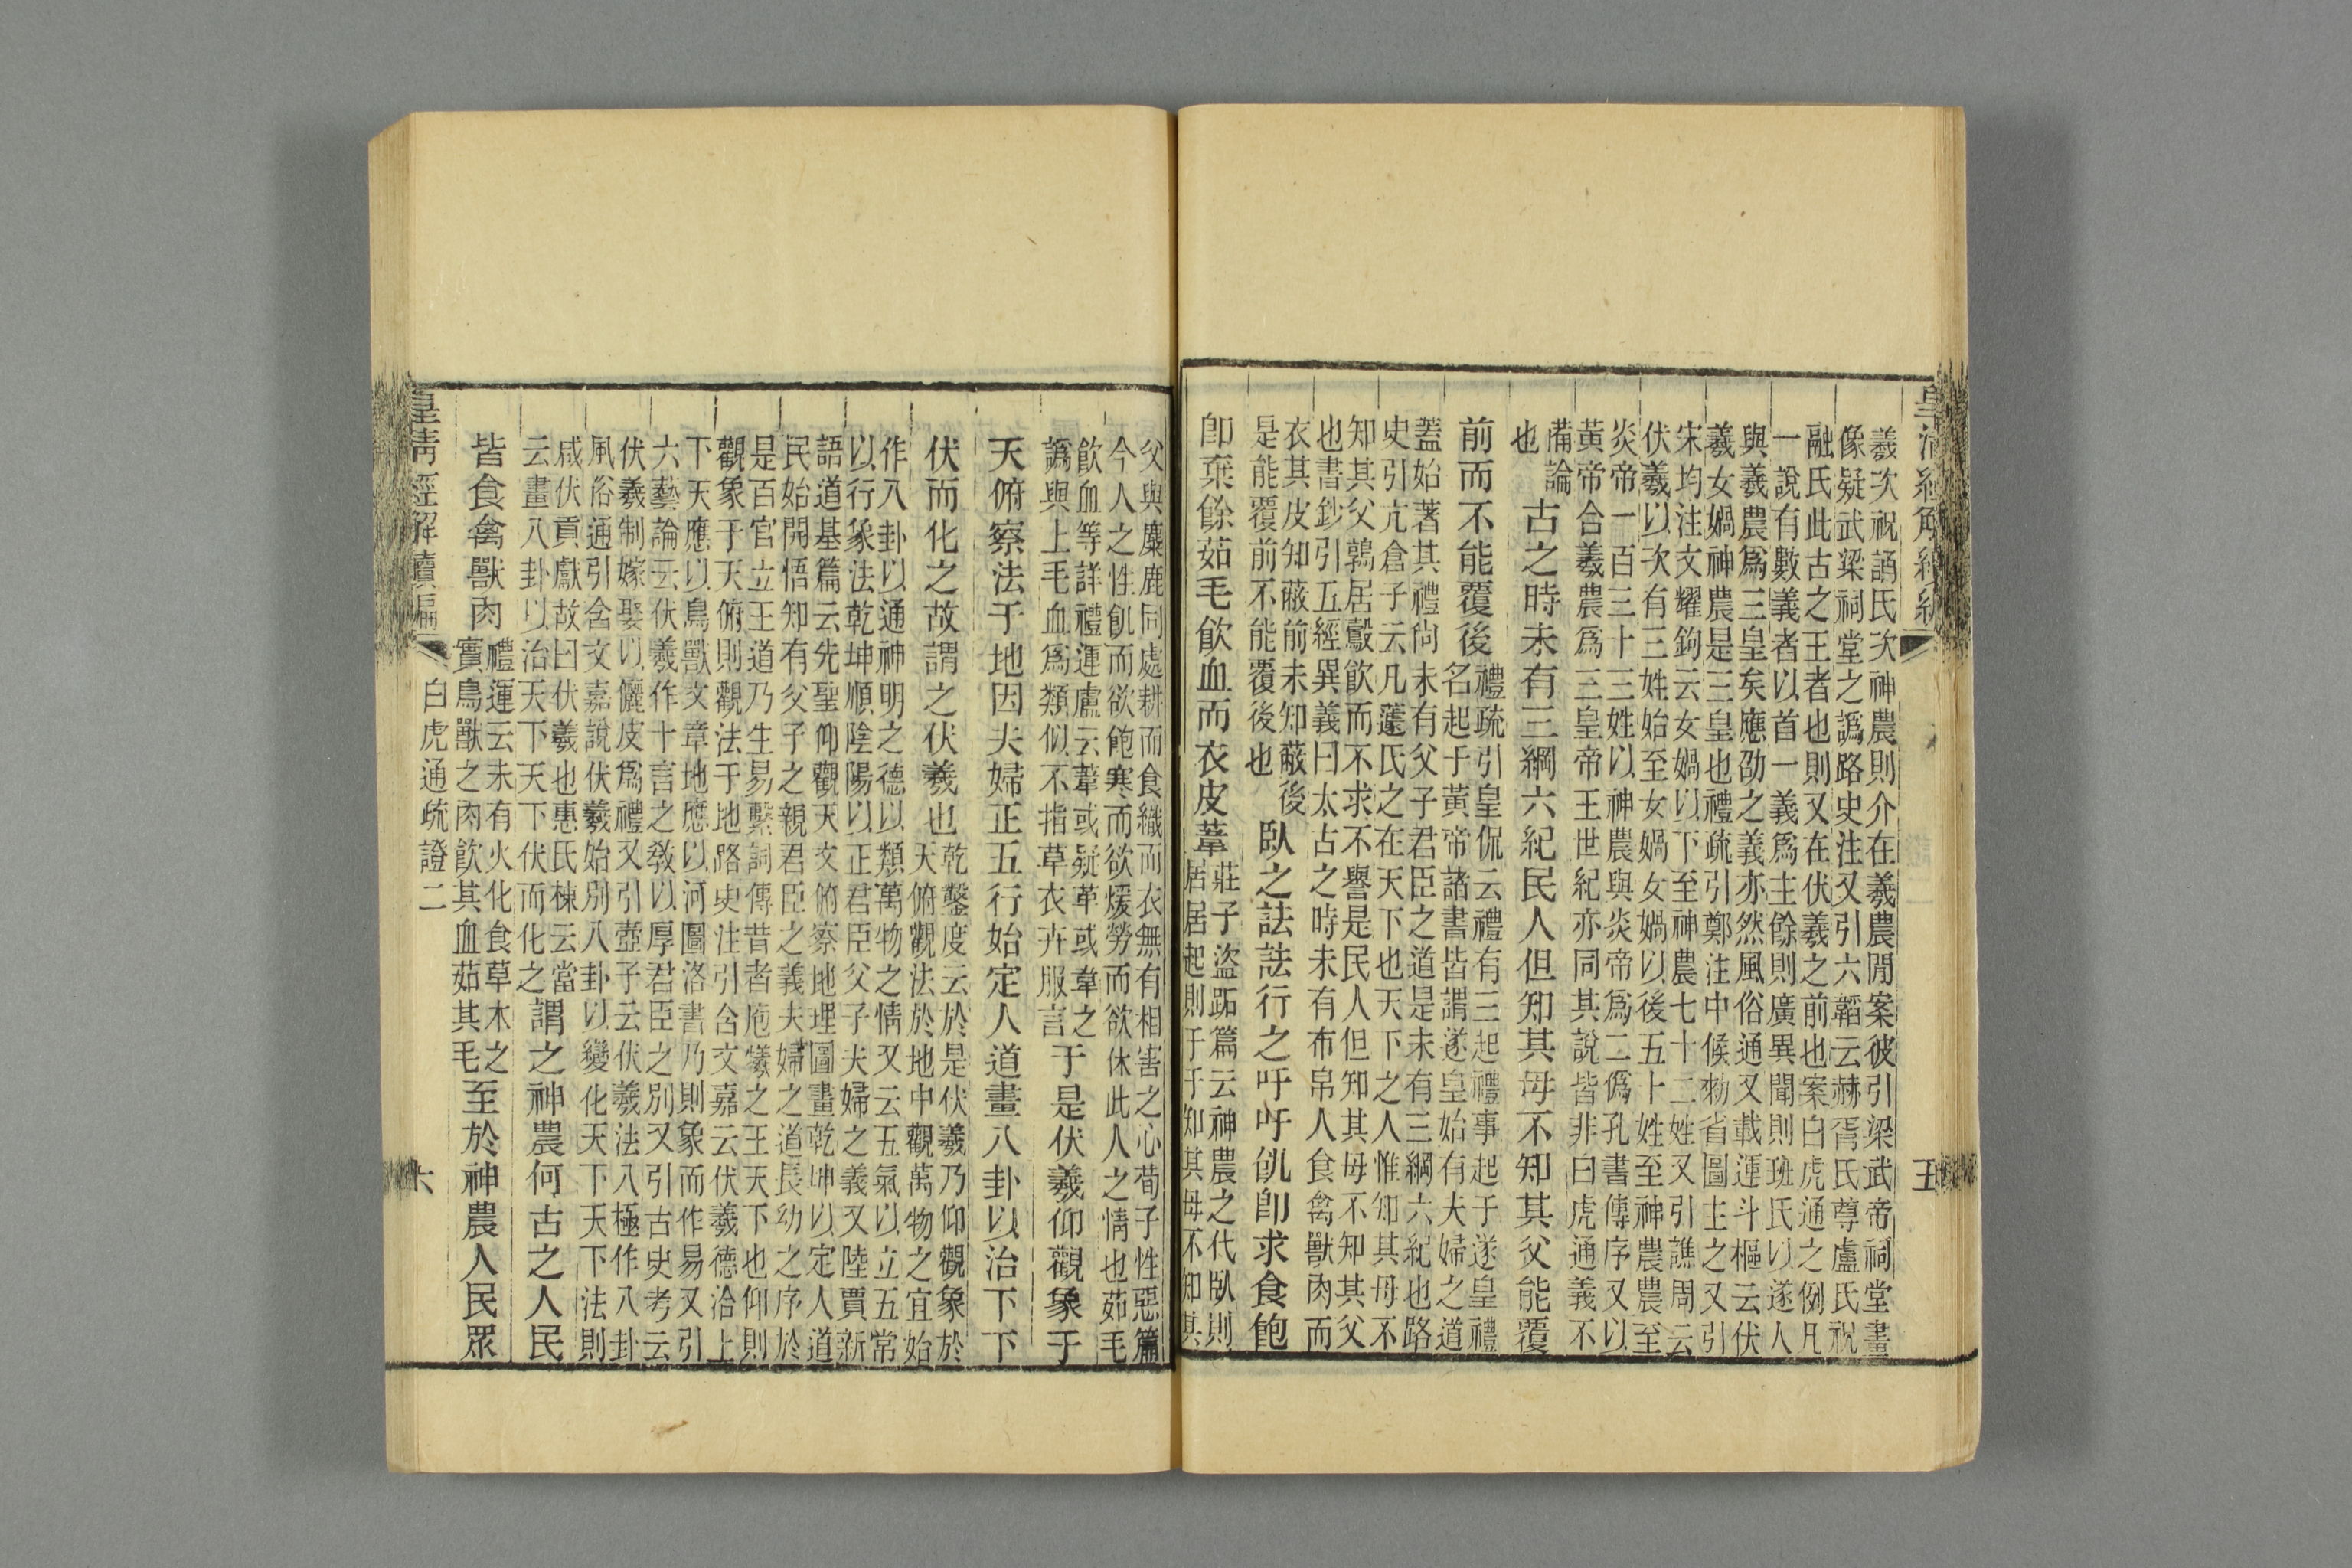 皇清經解續編
五
羲次祝誦氏次神農則介在羲農閒案彼引梁武帝祠堂畫
像疑武梁祠堂之譌路史注又引六韜云赫胥氏尊盧氏祝
融氏此古之王者也則又在伏羲之前也案白虎通之例凡
一說有數義者以首一義爲主餘則廣異聞則班氏以遂人
與羲農爲三皇矣應劭之義亦然風俗通又載運斗樞云伏
羲女媧神農是三皇也禮疏引鄭注中候勑省圖主之又引
宋均注文耀鉤云女媧以下至神農七十二姓又引譙周云
伏羲以次有三姓始至女媧女媧以後五十姓至神農農至
炎帝一百三十三姓以神農與炎帝爲二僞孔書傳序又以
黃帝合羲農爲三皇帝王世紀亦同其說皆非白虎通義不
備論
也
古之時未有三綱六紀民人但知其母不知其父能覆
前而不能覆後
禮疏引皇侃云禮有三起禮事起于遂皇禮
名起于黃帝諸書皆謂遂皇始有夫婦之道
蓋始著其禮尙未有父子君臣之道是未有三綱六紀也路
史引亢倉子云凡蘧氏之在天下也天下之人惟知其母不
知其父鶉居鷇飮而不求不譽是民人但知其母不知其父
也書鈔引五經異義曰太古之時未有布帛人食禽獸肉而
衣其皮知蔽前未知蔽後
是能覆前不能覆後也
臥之詓詓行之吁吁飢卽求食飽
卽棄餘茹毛飮血而衣皮葦
莊子盜跖篇云神農之代臥則
居居起則于于知其母不知其
父與麋鹿同處耕而食織而衣無有相害之心荀子性惡篇
今人之性飢而欲飽寒而欲煖勞而欲休此人之情也茹毛
飮血等詳禮運盧云葦或疑革或韋之
譌與上毛血爲類似不指草衣卉服言
于是伏羲仰觀象于
天俯察法于地因夫婦正五行始定人道畫八卦以治下下
伏而化之故謂之伏羲也
乾鑿度云於是伏羲乃仰觀象於
天俯觀法於地中觀萬物之宜始
作八卦以通神明之德以類萬物之情又云五氣以立五常
以行象法乾坤順陰陽以正君臣父子夫婦之義又陸賈新
語道基篇云先聖仰觀天文俯察地理圖畫乾坤以定人道
民始開悟知有父子之親君臣之義夫婦之道長幼之序於
是百官立王道乃生易繫詞傳昔者庖犧之王天下也仰則
觀象于天俯則觀法于地路史注引含文嘉云伏羲德洽上
下天應以鳥獸文章地應以河圖洛書乃則象而作易又引
六藝論云伏羲作十言之敎以厚君臣之別又引古史考云
伏羲制嫁娶以儷皮爲禮又引壺子云伏羲法八極作八卦
風俗通引含文嘉說伏羲始別八卦以變化天下天下法則
咸伏貢獻故曰伏羲也惠氏棟云當
云畫八卦以治天下天下伏而化之
謂之神農何古之人民
皆食禽獸肉
禮運云未有火化食草木之
實鳥獸之肉飮其血茹其毛
至於神農人民眾
皇清經解續編
白虎通疏證二
六